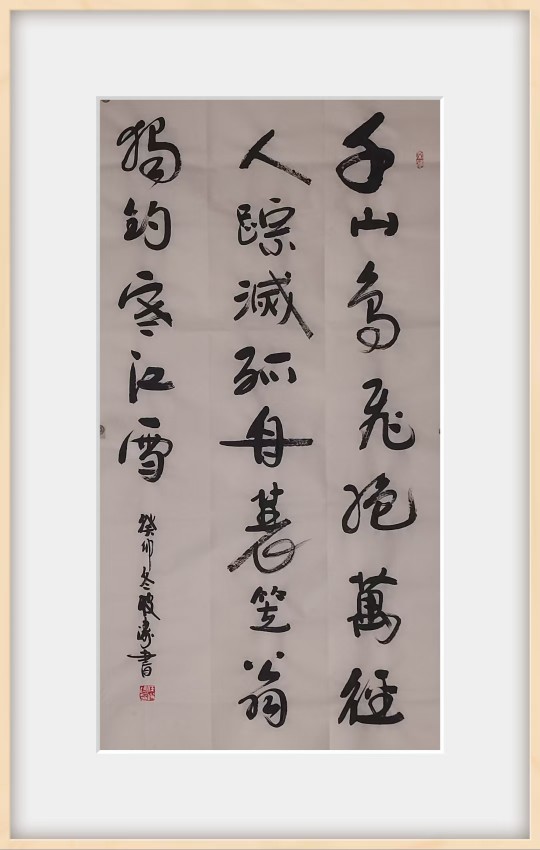 千山鳥飛絶萬徑
人踪滅孤舟蓑笠翁
獨釣寒江雪
癸卯冬書